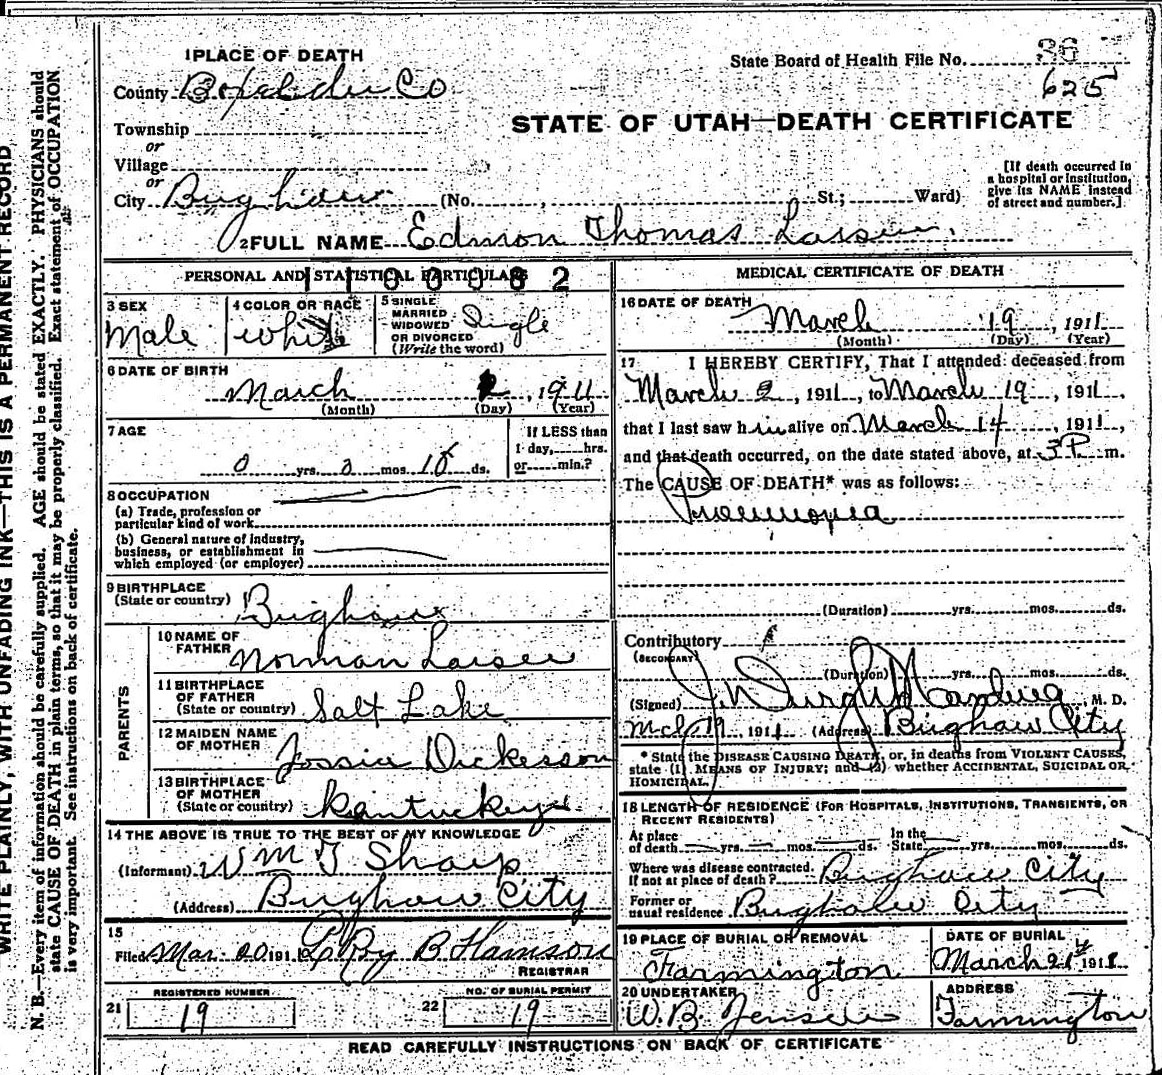 WRITE PLAINLY, WITH UNFADING INK—THIS IS A PERMANENT RECORD
N. B.—Every item of information should be carefully supplied. AGE should be stated EXACTLY. PHYSICIANS should
state CAUSE OF DEATH in plain terms, so that it may be properly classified. Exact statement of OCCUPATION
is very important. See instructions on back of certificate.
1 PLACE OF DEATH
State Board of Health File No. 36
625
County Boxelder Co
STATE OF UTAH—DEATH CERTIFICATE
Township
or
Village
or
City Brigham (No. , St.; Ward)
[If death occurred in
a hospital or institution,
give its NAME instead
of street and number.]
2 FULL NAME Edmon Thomas Larsen.
PERSONAL AND STATISTICAL PARTICULARS
1100082
3 SEX
Male
4 COLOR OR RACE
White
5 SINGLE
MARRIED
WIDOWED
OR DIVORCED
(Write the word)
Single
6 DATE OF BIRTH
March 2, 1911
(Month) (Day) (Year)
7 AGE
0 yrs. 0 mos. ds.
If LESS than
1 day, hrs.
or min.?
8 OCCUPATION
(a) Trade, profession or
particular kind of work
(b) General nature of industry,
business, or establishment in
which employed (or employer)
9 BIRTHPLACE
(State or country) Brigham
PARENTS
10 NAME OF
FATHER
Norman Larsen
11 BIRTHPLACE
OF FATHER
(State or country) Salt Lake
12 MAIDEN NAME
OF MOTHER
Dickesson
13 BIRTHPLACE
OF MOTHER
(State or country) Kantuckey
14 THE ABOVE IS TRUE TO THE BEST OF MY KNOWLEDGE
(Informant) Wm T Sharp
(Address) Brigham City
15
Filed Mar. 20 191 B Hamson
REGISTRAR
21 REGISTERED NUMBER
19
22 NO. OF BURIAL PERMIT
19
MEDICAL CERTIFICATE OF DEATH
16 DATE OF DEATH
March 19, 1911
(Month) (Day) (Year)
17 I HEREBY CERTIFY, That I attended deceased from
March 2, 1911, to March 19, 1911,
that I last saw him alive on March 14, 1911,
and that death occurred, on the date stated above, at 3 P. m.
The CAUSE OF DEATH* was as follows:
Pneumonia
(Duration) yrs. mos. ds.
Contributory
(SECONDARY)
(Duration) yrs. mos. ds.
(Signed) , M. D.
Mch 19 1911 (Address) Brigham City
* State the DISEASE CAUSING DEATH, or, in deaths from VIOLENT CAUSES,
state (1) MEANS OF INJURY; and (2) whether ACCIDENTAL, SUICIDAL OR
HOMICIDAL.
18 LENGTH OF RESIDENCE (FOR HOSPITALS, INSTITUTIONS, TRANSIENTS, OR
RECENT RESIDENTS)
At place
of death yrs. mos. ds.
In the
State yrs. mos. ds.
Where was disease contracted,
If not at place of death? Brigham City
Former or
usual residence Brigham City
19 PLACE OF BURIAL OR REMOVAL
Farmington
DATE OF BURIAL
March 21st 1911
20 UNDERTAKER
W. B. Jensen
ADDRESS
Farmington
READ CAREFULLY INSTRUCTIONS ON BACK OF CERTIFICATE